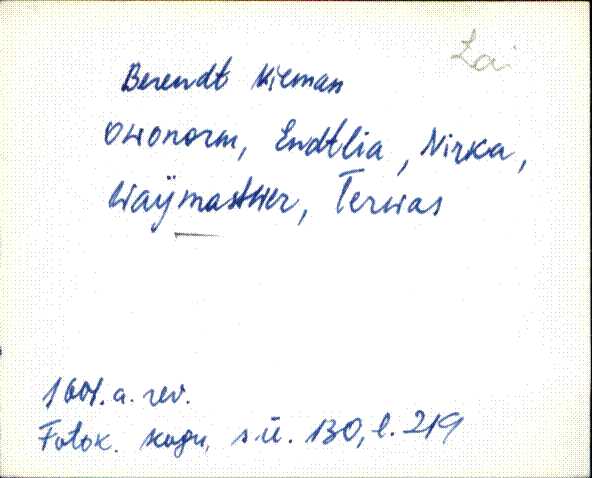 Lai
Berendt Kieman
Owonorm, Endtlia, Nirka,
Waÿmastwer, Terwas
1601. a. rev.
Fotok. kogu, s.ü. 130, l. 219